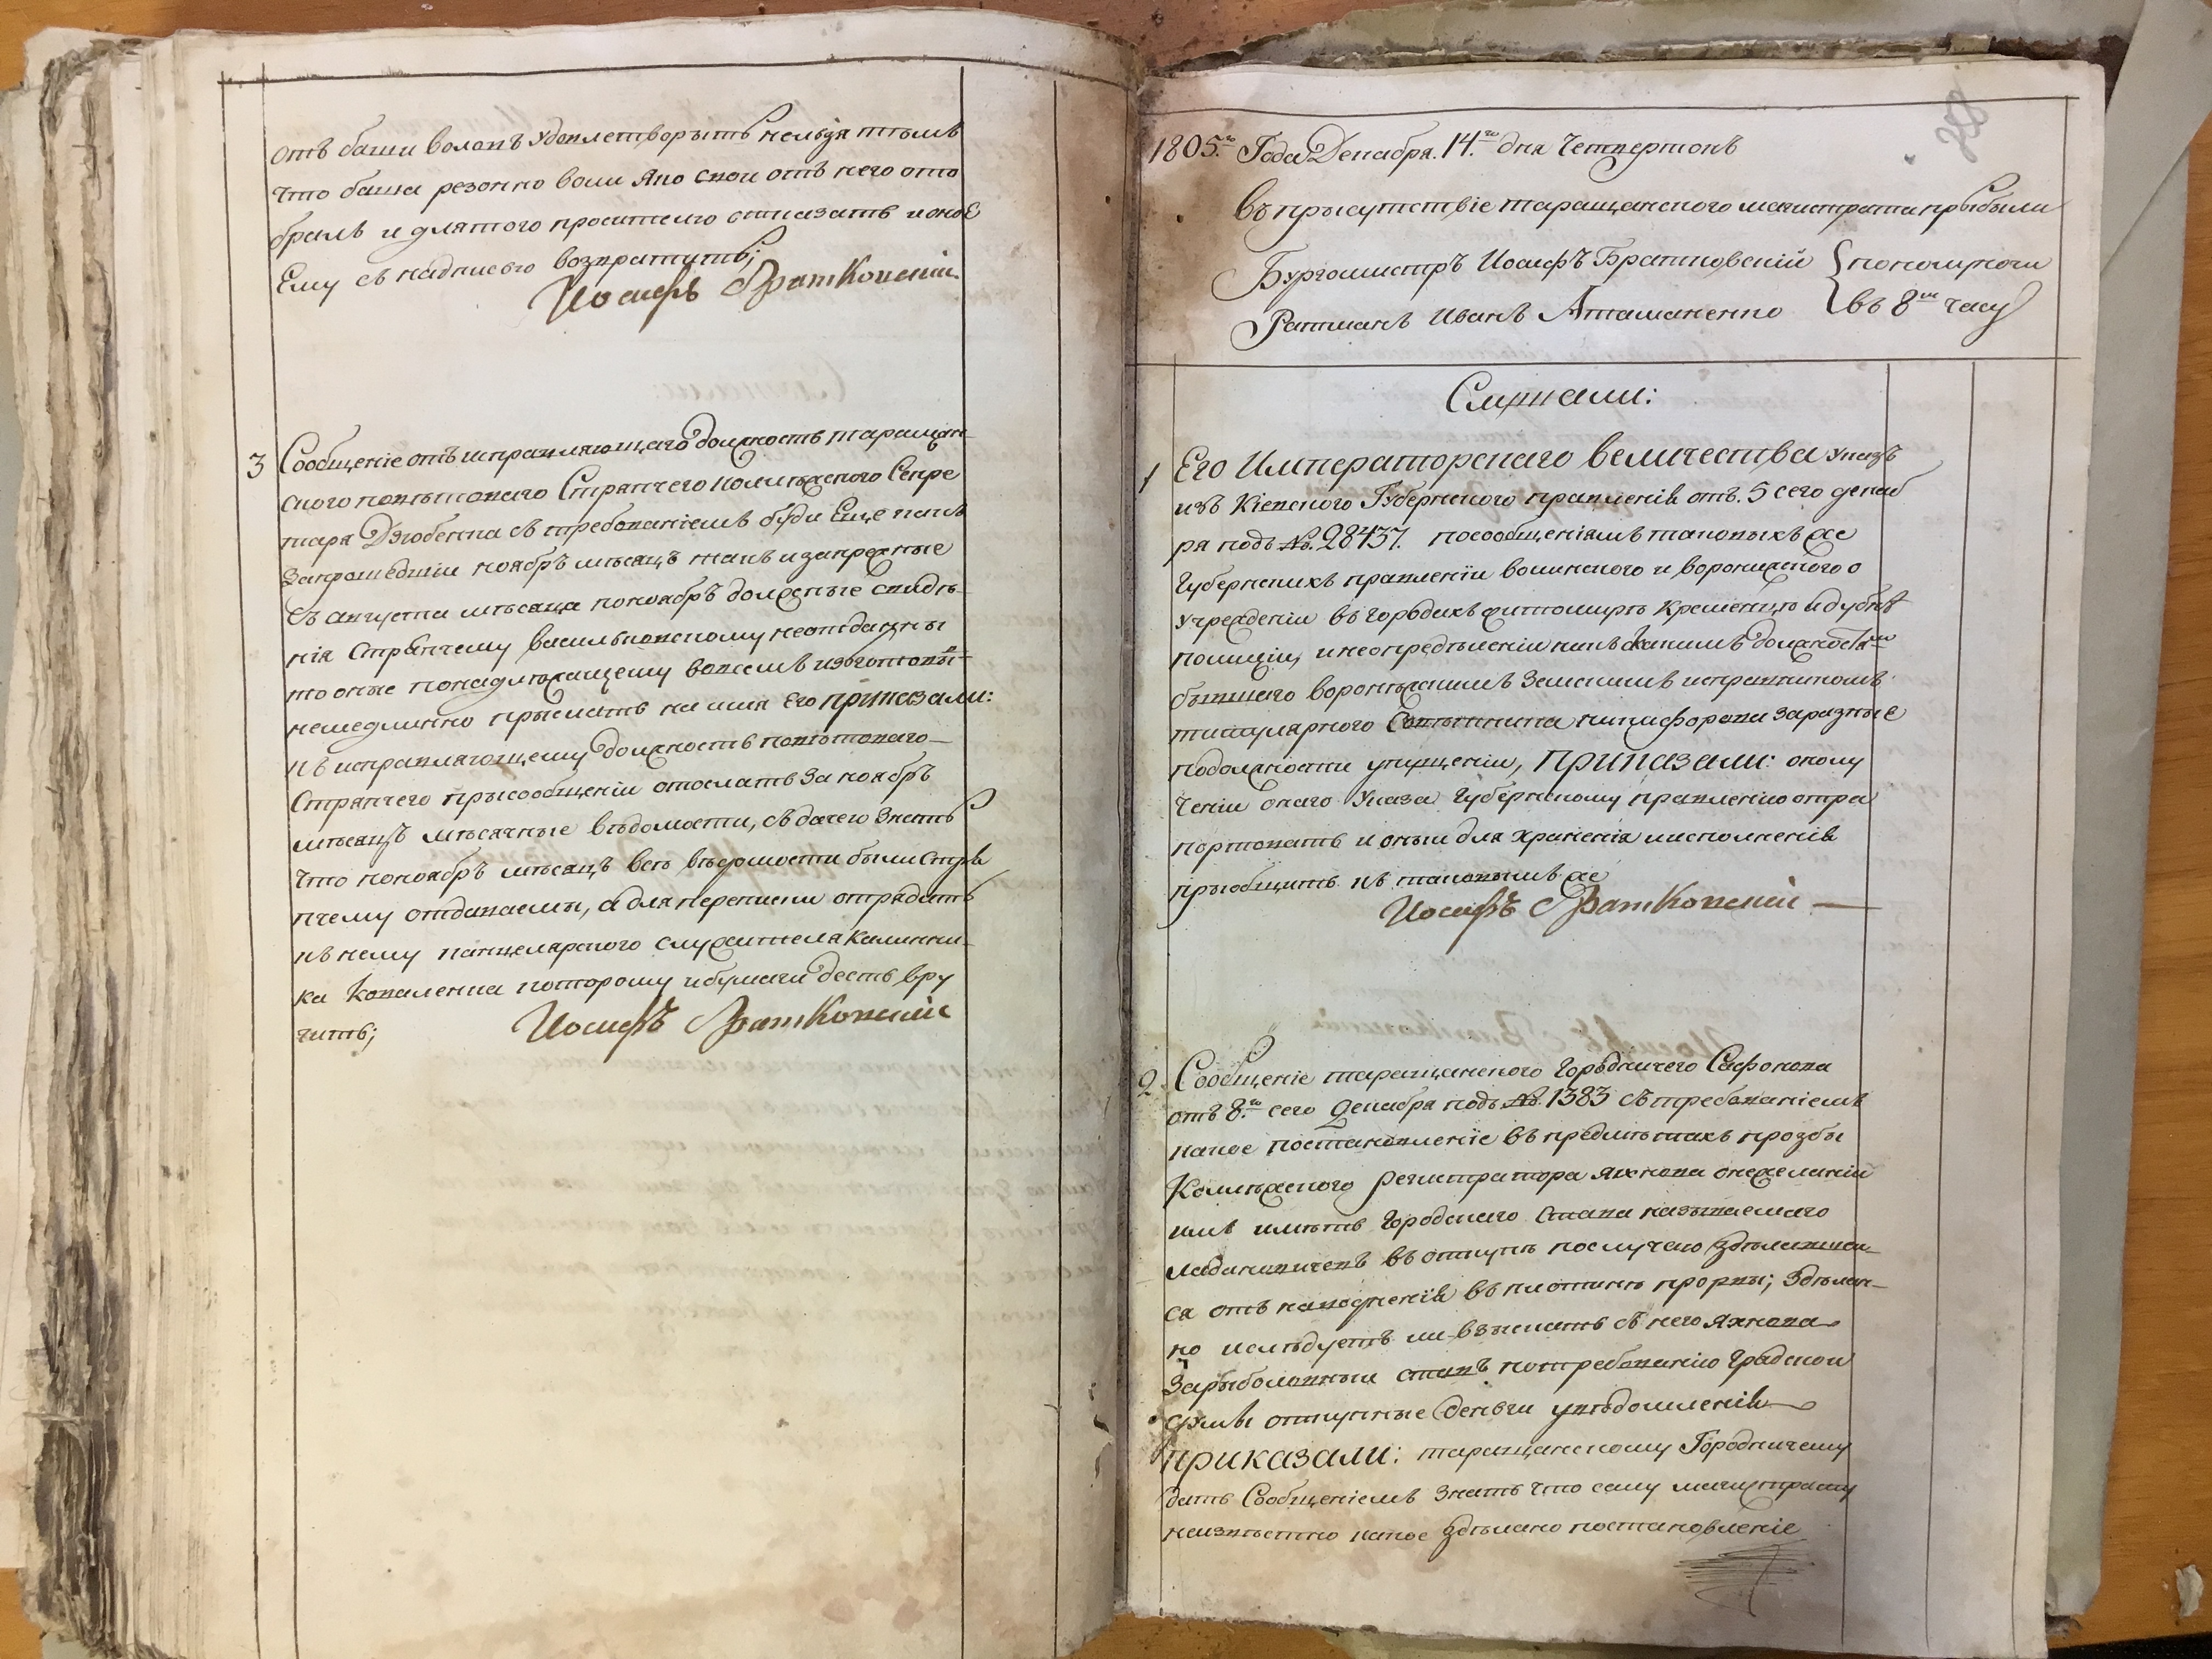 отъ баши воловъ удовлетворыть нельзя тѣмъ
что баша резонно воли яко свои отъ него ото
бралъ и длятого просителю отказать и оное
Ему съ надписью возвратить;
Иосифъ Братковскій
3 Сообщеніе отъ исправляющаго должность таращан-
ского повѣтоваго Стряпчего Колѣжского Секре
таря Дзюбенка съ требованіемъ буди Еще какъ
запрошедшіи ноябрь мѣсяцъ такъ и запрежные
съ августа мѣсяца поноябрь должные сведѣ-
нія Стряпчему васильковскому неотданны
то оные понадлежащему вовсемъ изготовы-
немедлинно прыслать на имя Его приказали:
къ исправляющему должность повѣтоваго
Стряпчего прысообщеніи отослать за ноябрь
мѣсяцъ мѣсячные вѣдомости, съ дачею знать
что поноябрь мѣсяцъ всѣ вѣдомости были Стря
пчему отдаваемы, а для переписки отрядить
къ нему канцелярского служителя Калинни-
ка Коваленка которому и бумаги десть вру
чить;
Иосифъ Братковскій
1805.го Года Декабря. 14.го дня Четвертокъ
въ прысутствіе таращанского магистрата прыбыли
Бургомистръ Иосифъ Братковскій пополуночи
Ратманъ Иванъ Атаманенко въ 8м часу
Слушали:
1 Его Императорскаго величества указъ
изъ Кіевского Губернского правленія отъ. 5 сего декаб
ря подъ №. 28437. посообщеніямъ таковыхъ же
Губернскихъ правленіи волинского и воронежского о
учрежденіи въ городахъ житомирѣ Кременцю и дубнѣ
полиціи, и неопредѣленіи никъ какимъ должностям
бывшаго воронѣжскимъ Земскимъ исправникомъ
титулярного Совѣтника никифорова заразные
подолжности упущеніи, приказали: ополу
ченіи онаго Указа Губернскому правленію отра
портовать и оныи для храненія и исполненія
прыобщить къ таковымъ же
Иосифъ Братковскій
2 Сообщеніе таращанского Городничего Сафонова
отъ 8.го сего декабря подъ №. 1383 съ требованіемъ
какое постановленіе въ предметахъ прозбы
Колѣжского регистратора яхнова онежеланіи
имъ имѣть Городскаго Става называемаго
въ откупѣ послучаю здѣлавшаго-
ся отъ наводненія въ плотинѣ прорвы; здѣлан-
но ислѣдуетъ ли взыскать съ него яхнова
зарыболовныи ставъ потребованію Градскои
думы откупные деньги увѣдомленія
приказали: таращанскому Городничему
дать Сообщеніемъ знать что сему магистрату
неизвѣстно какое здѣлано постановленіе